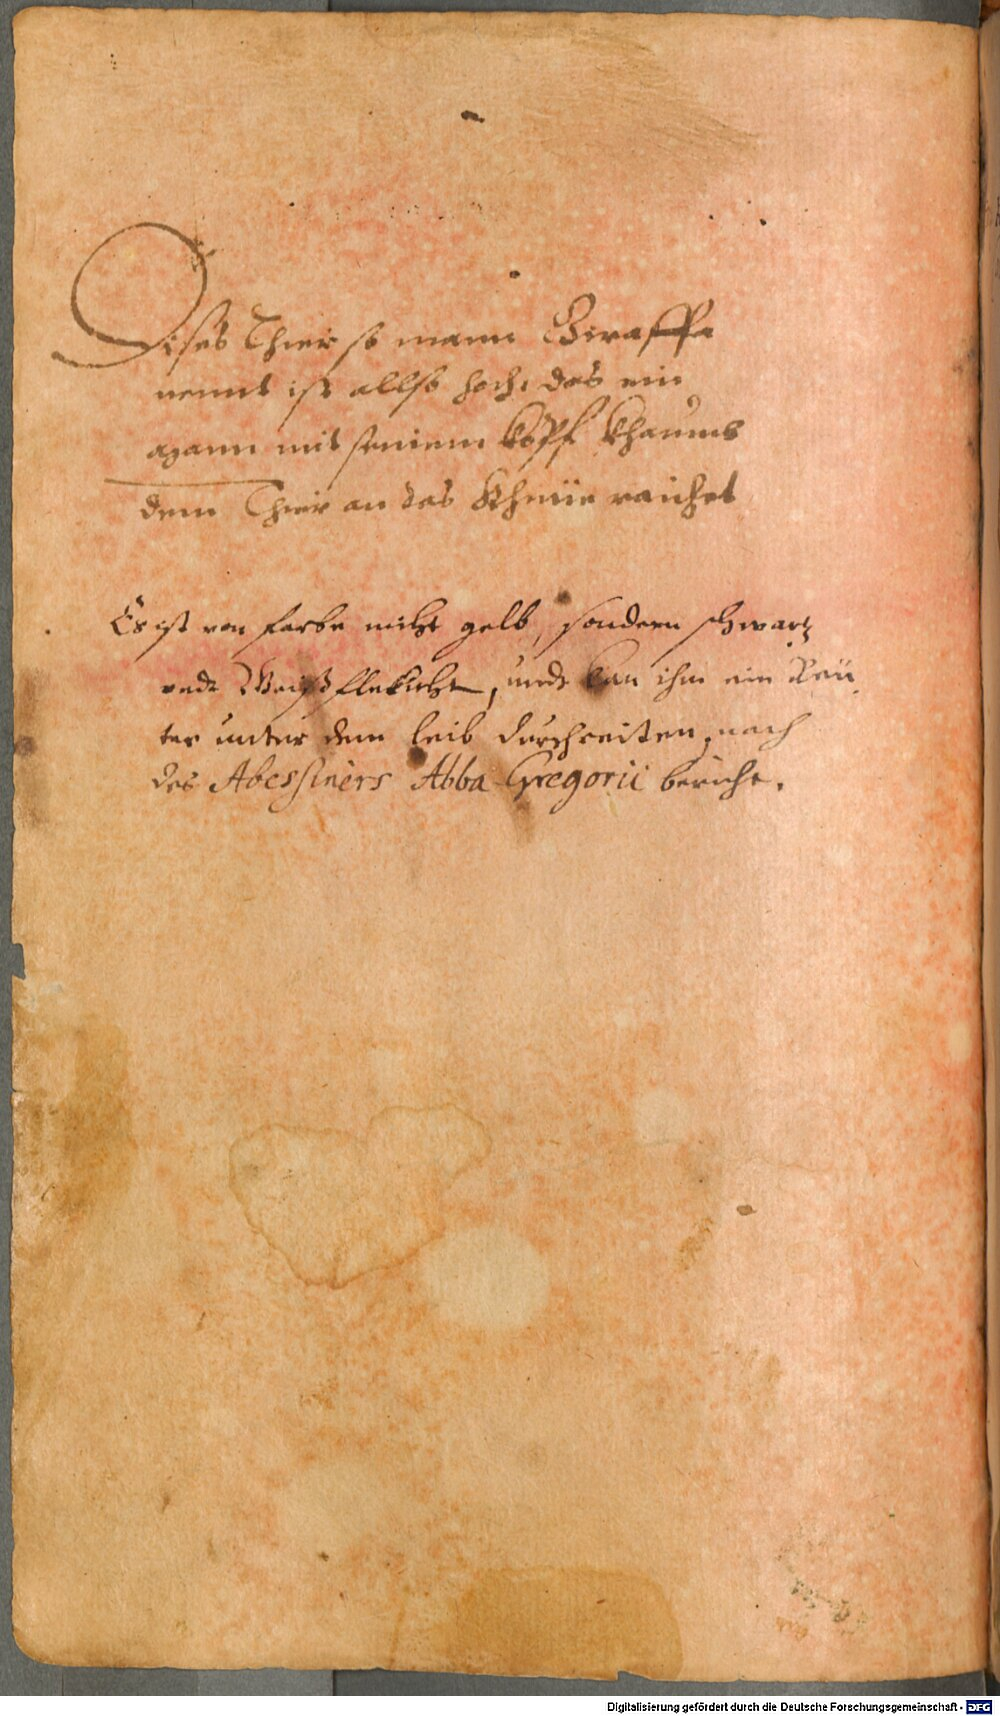 Dises Thier so mann Giraffa
nennt ist allso hoch, das ein
mann mit seinem kopff khaumb
dem Thier an das Khnüe raichet
Es ist von farbe nicht gelb, sondern schwartz
undt Weiß flekicht, undt kan ihm ein Reü
ter unter dem leib durchreiten, nach
des Abessiners Abba Gregorii bericht.
Digitalisierung gefördert durch die Deutsche Forschungsgemeinschaft - DFG